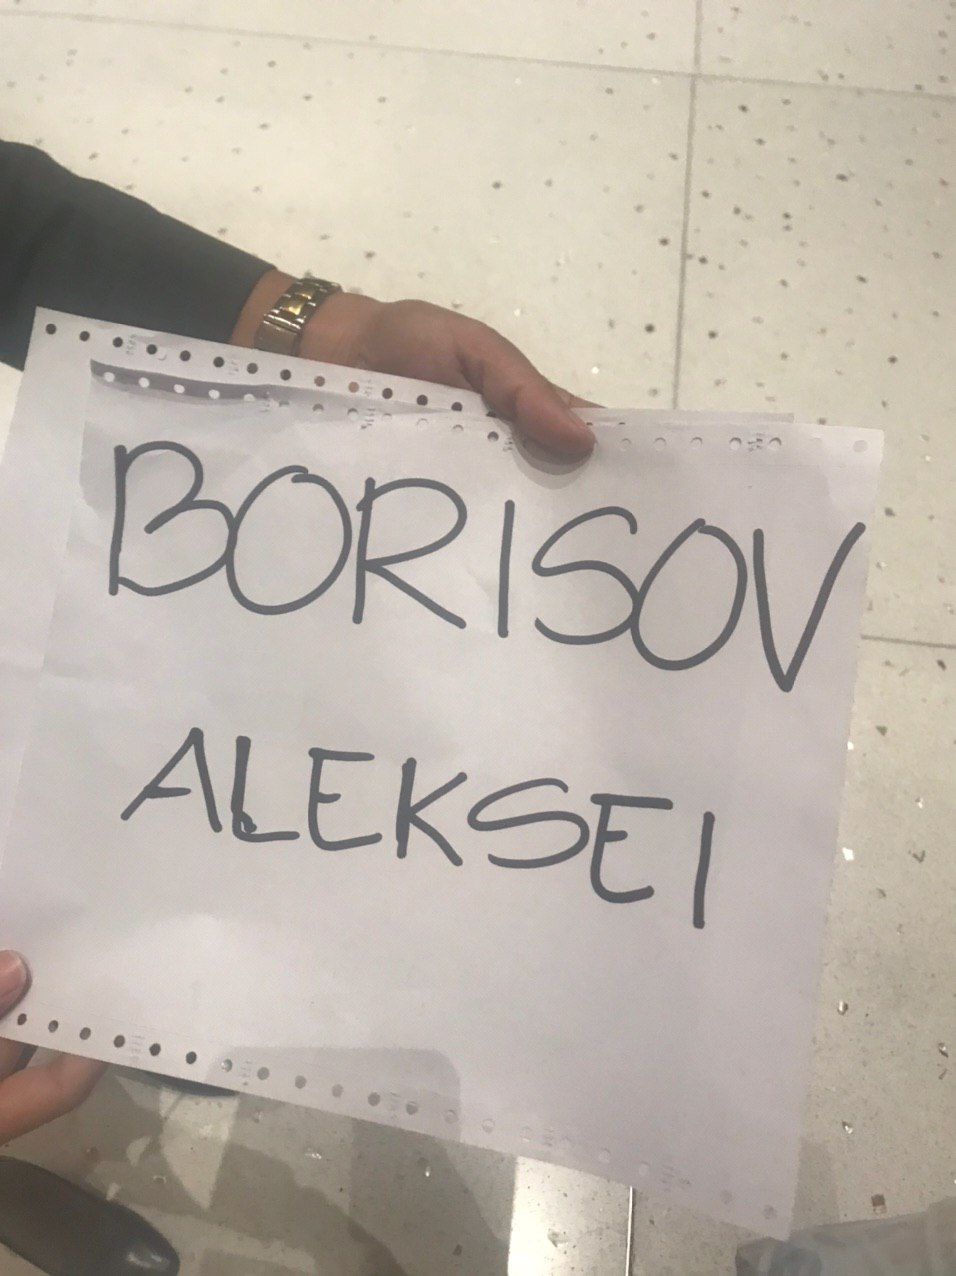 BORISOV
ALEKSEI